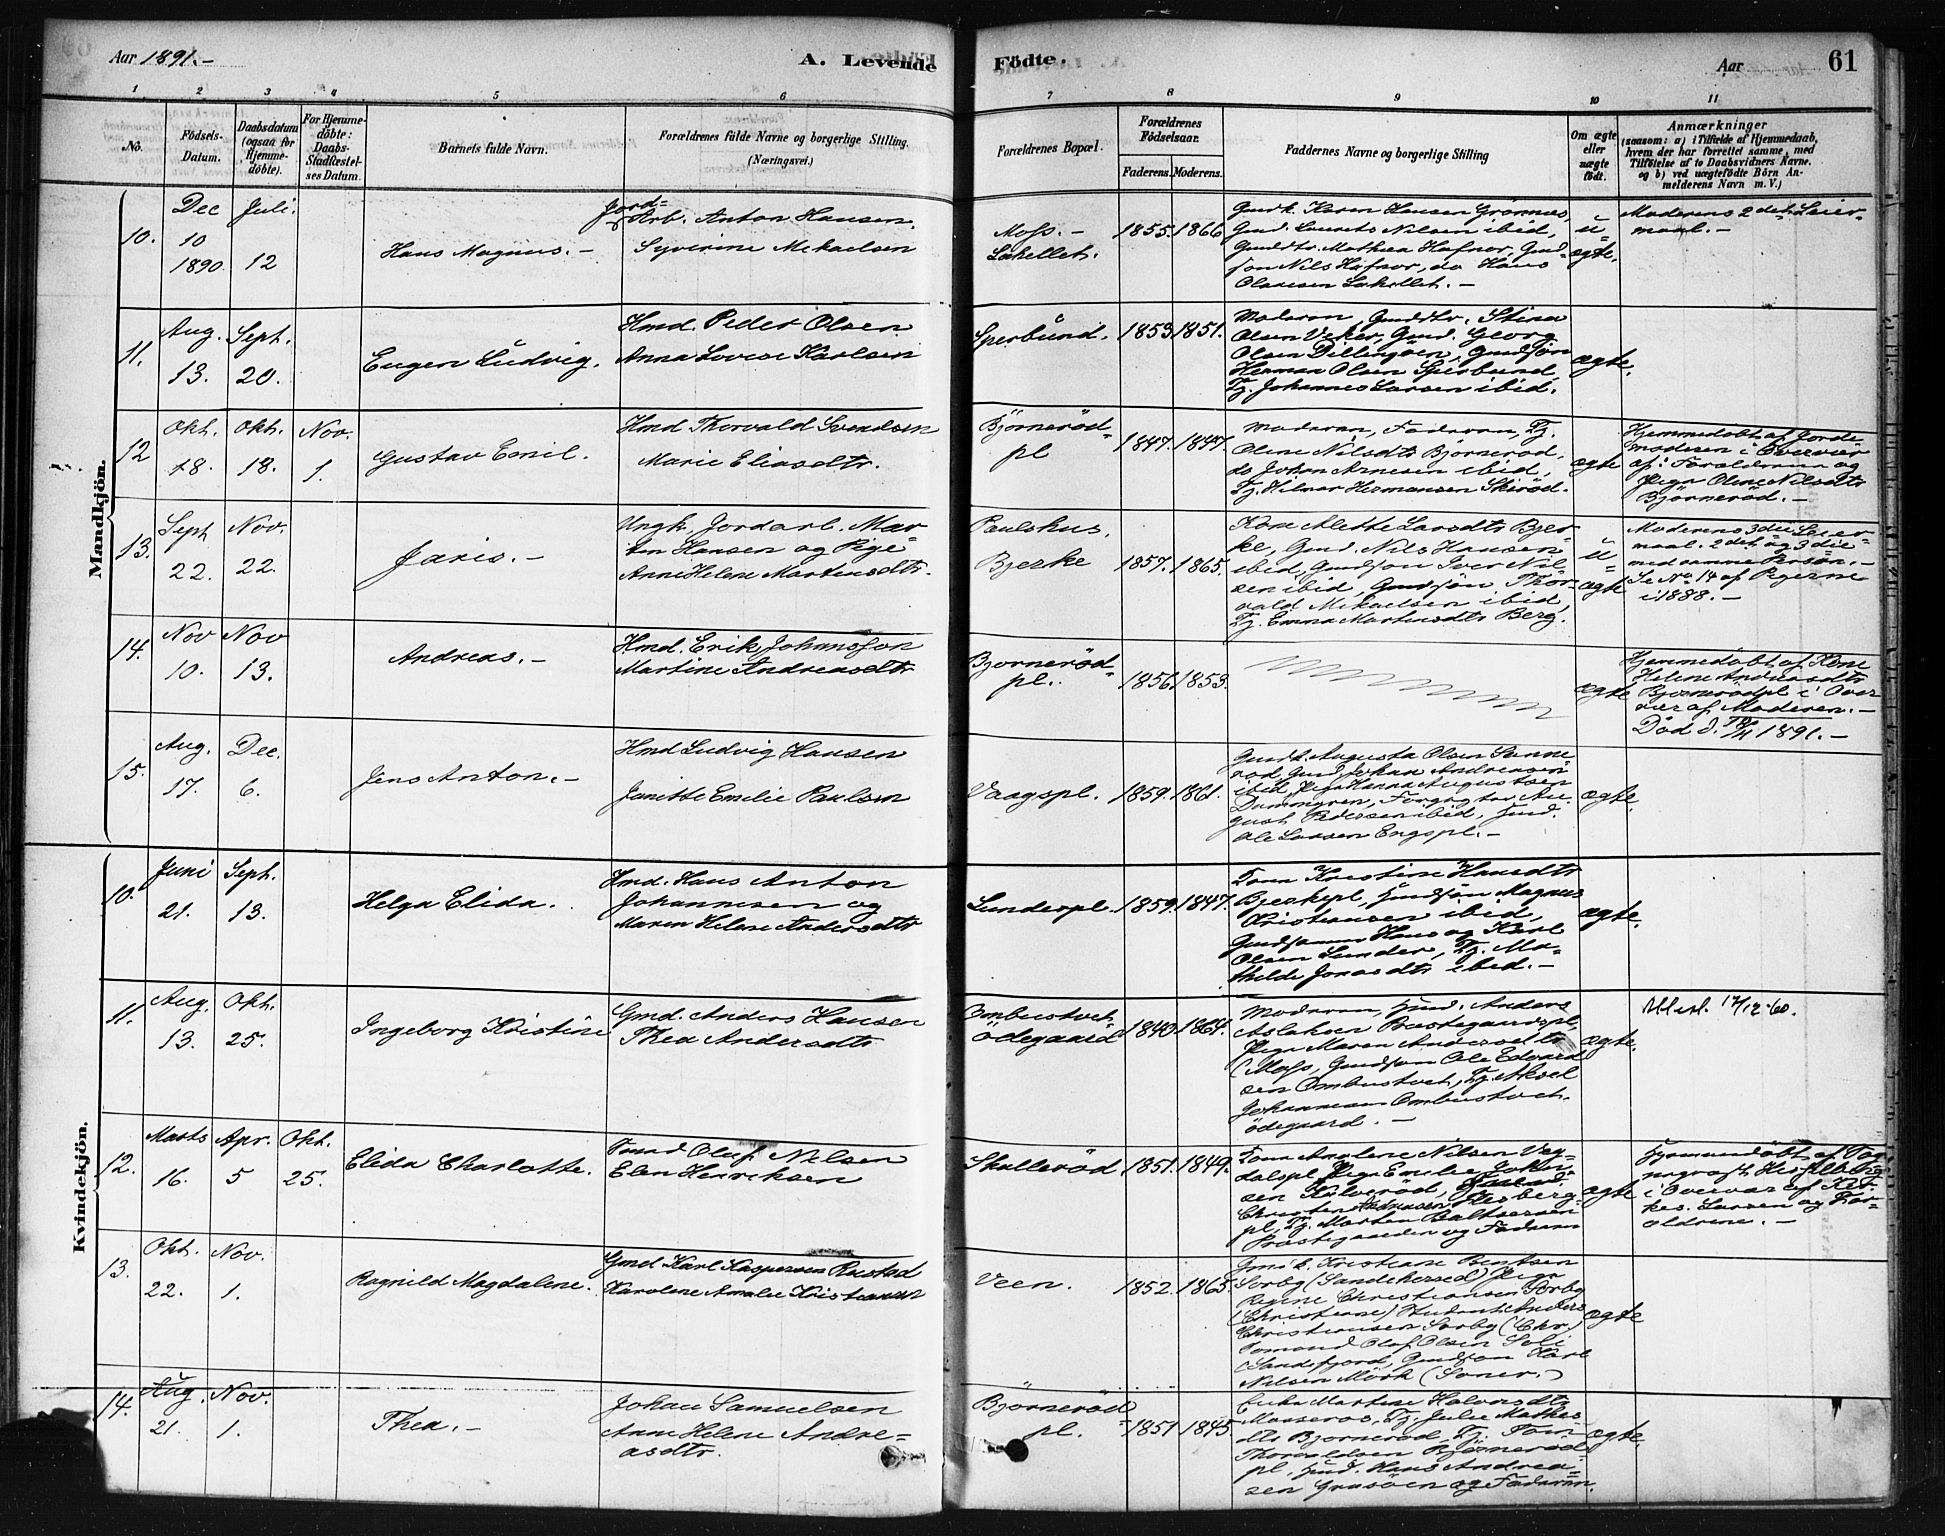 Aar 1891.-
A. Levende
Födte.
Aar
61
1
2
3
4
5
6
7
8
9
10
11
No.
Födsels-
Datum.
Daabsdatum
(ogsaa for
Hjemme-
döbte).
For Hjemme-
döbte:
Daabs-
Stadfæstel-
ses Datum.
Barnets fulde Navn.
Forældrenes fulde Navne og borgerlige Stilling.
(Næringsvei.)
Forældrenes Bopæl.
Forældrenes
Födselsaar.
Faderens.
Moderens.
Faddernes Navne og borgerlige Stilling
Om ægte
eller
uægte
födt.
Anmærkninger
(saasom: a) i Tilfælde af Hjemmedaab,
hvem der har forrettet samme, med
Tilföielse af to Daabsvidners Navne.
og b) ved uægtefödte Börn An-
melderens Navn m. V.)
Mandkjön.
10.
Dec
10
1890.
Juli.
12
Hans Magnus. -
Jord=
Arb. Anton Hansen.
Syverine Mikaelsen
Moss. -
Lakellet.
1855.
1866
Gmdk. Karen Hansen Grönnæs,
Gmd. Laurits Nilsen ibid,
Gmddtr. Mathea Hafsror, Gmd=
søn Nils Hafsror, do Hans
Olausen Lakellet. -
u=
ægte.
Moderens 2det Leier-
maal. -
11.
Aug.
13.
Sept.
20.
Eugen Ludvig.
Hmd. Peder Olsen
Anna Lovise Karlsen
Sperbund.
1853
1851.
Moderen, Gmddtr. Stina
Olsen Veker, Gmd. Georg
Olsen Dillingöen, Gmdsön
Herman Olsen Sperbund,
Tj. Johannes Larsen ibid.
ægte.
12
Okt.
18.
Okt.
18.
Nov.
1.
Gustav Emil.
Hmd Thorvald Svendsen
Marie Eliasdtr.
Björneröd-
pl
1847.
1847.
Moderen, Faderen, Tj.
Oline Nilsdtr Björneröd,
do Johan Arnesen ibid,
Tj. Hilmar Hermansen Skiröd.
ægte
Hjemmedöbt af Jorde-
moderen i Overvær
af: Forældrene og
Pige Oline Nilsdtr
Björneröd. -
13.
Sept
22.
Nov.
22.
Jaris. -
Ungk. Jordarb. Mar-
tin Hansen og Pige
Anne Helene Martinsdtr.
Paulshus.
Bjerke
1857.
1865.
Kone Alette Larsdtr Bjer-
ke, Gmd. Nils Hansen
ibid, Gmdsön Iver Nil-
sen ibid, Gmdsön Thor-
vald Mikaelsen ibid,
Tj. Emma Martinsdtr Berg.
u=
ægte
Moderens 3die Leier-
maal. 2det og 3die
med samme Person. -
Se No 14 af Pigerne
i 1888. -
14.
Nov
10.
Nov
13.
Andreas. -
Hmd. Erik Johanssön
Martine Andreasdtr
Björneröd-
pl.
1856
1853.
ægte
Hjemmedöbt af Kone
Helene Andreasdtr
Björnerödpl i Over
vær af Moderen. -
Död d. 1891. -
15.
Aug.
17.
Dec.
6.
Jens Anton. -
Hmd Ludvig Hansen
Janette Emilie Paulsen
Vaagspl.
1859.
1861.
Gmdk. Augusta Olsen Sanne
rod, Gmd. Johan Andreasen
ibid, Pige Hanna Augustsen
Dammyren, Forgyger Au-
gust Pedersen ibid, Gmd.
Ole Larsen Engspl. -
ægte.
Kvindekjön.
10.
Juni
21.
Sept.
13.
Helga Elida.
Hmd. Hans Anton
Johannesen og
Maren Helene Andersdtr
Sunderspl.
1859.
1847.
Tom Kristine Hansdtr
Bjerkepl, Gmdsön Magnus
Kristiansen ibid,
Gmdsönnerne Hans og Karl
Olsen Sunder, Tj. Ma-
thilde Jonasdtr ibid. -
ægte.
11.
Aug.
13.
Okt.
25.
Ingeborg Kristine
Gmd. Anders Hansen
Thea Andersdtr
Ombustvet
Ödegaard
1840
1864.
Moderen, Gmd. Anders
Aslaksen Præstegaardspl,
Pige Maren Andersdtr
(Moss, Gmdsön Ole Edvard
sen Ombustvet, Tj. Aksel
Johannesen Ombustvet
ödegaard. -
ægte.
Attest. 17/12-60.
12.
Marts
16.
Apr.
5
Okt.
25.
Elida Charlotte.
Olaf Nilsen
Elen Henriksen
Skalleröd
1851.
1849.
Analene Nilsen Væ-
dalspl, Pige Emilie
sen Kalveröd,
Christen Andreasen
pl, Tj. Morten Baltsersen
Præstegaarden og Faderen
ægte
Hjemmedöbt af Sog-
nepræst Hesselberg
i Overvær af Kir-
kes. Larsen og For-
ældrene. -
13.
Okt.
22.
Nov.
1.
Ragnild Magdalene.
Gmd Karl Kaspersen Rustad
Karolene Amalie Kristiansen
Veen.
1852.
1865.
Gmdk. Kristiane Bentsen
Sorby (Sandeherred) Pige
Regine Christiansen Sorby
(Christiane) Student Anders
Christiansen Sorby (Chr.)
Sömand Olaf Olsen Soli
(Sandefjord, Gmdsön Karl
Nilsen Mörk (Soner.)
ægte
14.
Aug.
21.
Nov.
1.
Thea. -
Johan Samuelsen
Anne Helene Andre=
asdtr.
Björneröd
pl.
1851
1845.
Enke Martine Halvorsdtr
Mosseros, Tj. Julie Mathis
dtr Björneröd, Tj. Tom
Thorvaldsen Björneröd
pl, Gmd. Hans Andrea=
sen Græsöen og Faderen.
ægte.